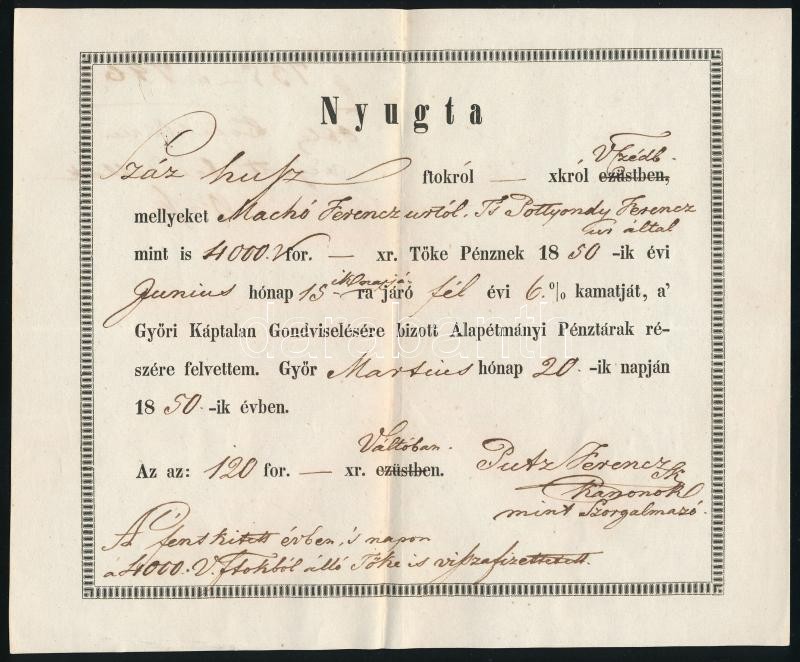 Nyugta
Száz husz ftokról — xkról ezüstben,
mellyeket Machó Ferencz urtól. Ts Pottyondy Ferencz
ur által
mint is 4000. V for. — xr. Töke Pénznek 1850-ik évi
ik napjá-
Junius hónap 15 ra járó fél évi 6.% kamatját, a'
Győri Káptalan Gondviselésére bizott Alapétmányi Pénztárak ré-
szére felvettem. Győr Martius hónap 20.-ik napján
1850.-ik évben.
Váltóban.
Az az: 120 for. — xr. ezüstben. Putz Ferencz
Kanonok
mint Szorgalmazó.
A' fentkitett évben, 's napon
a 4000. V. ftokból álló Töke is viszafizettetett.
darabanth